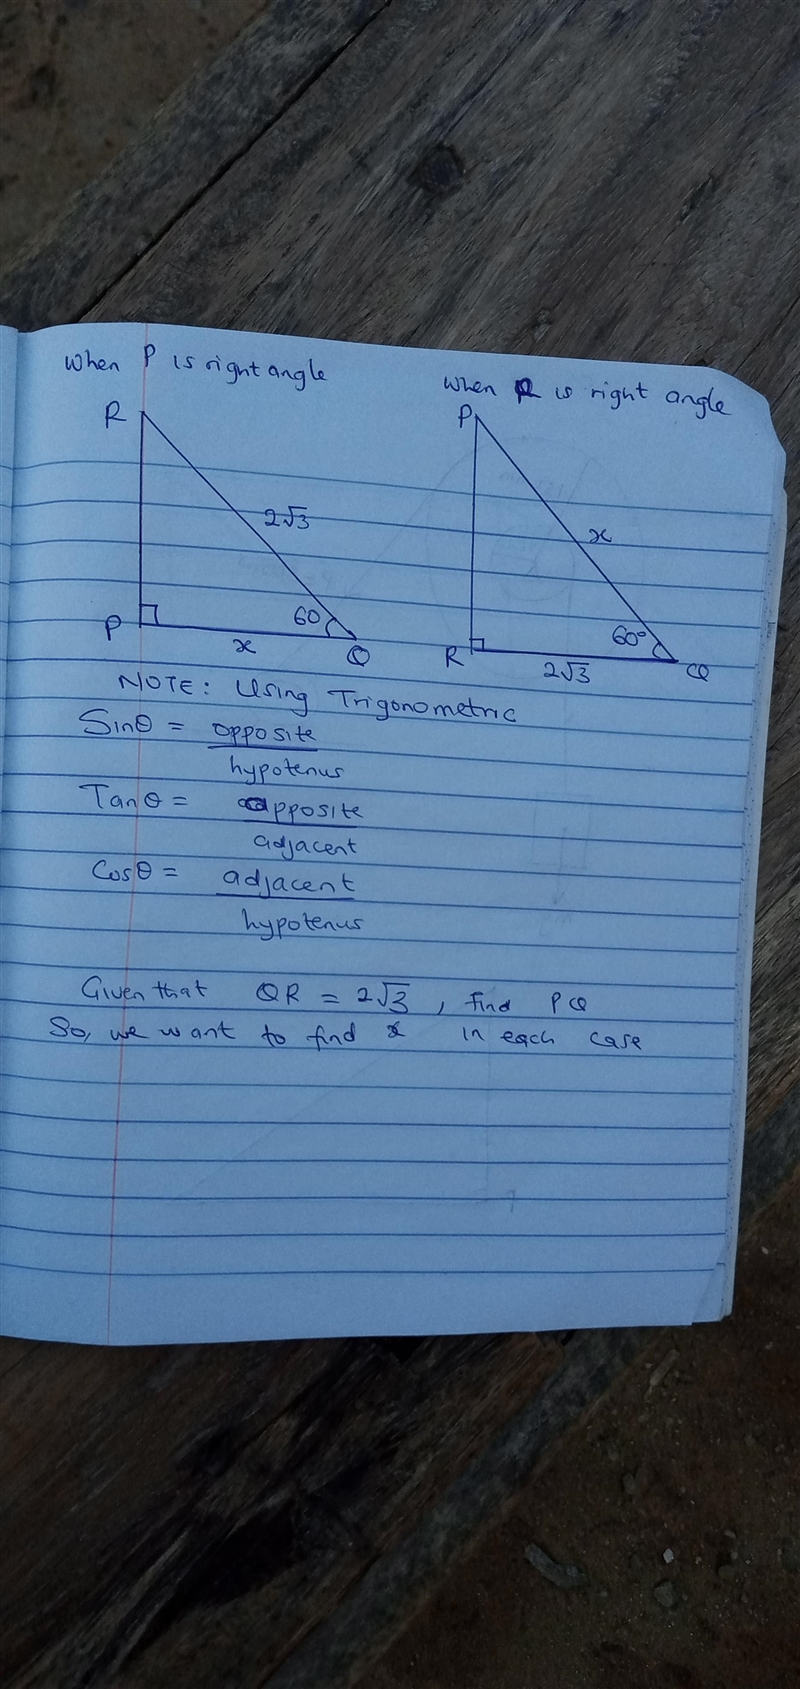 When P is right angle
When R is right angle
R
P
2√3
x
60
60°
P
x
Q
R
2√3
Q
NOTE: Using Trigonometric
Sinθ = opposite
hypotenus
Tanθ = opposite
adjacent
Cosθ = adjacent
hypotenus
Given that QR = 2√3, find PQ
So, we want to find x in each case